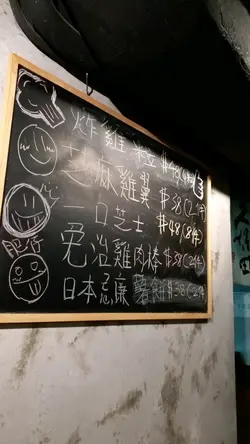 炸雞粒 $48
芝麻雞翼 $38(2件)
心一口芝士 $48(8件)
免治雞肉棒 $38(2件)
肥仔
日本忌廉薯 $38(2件)